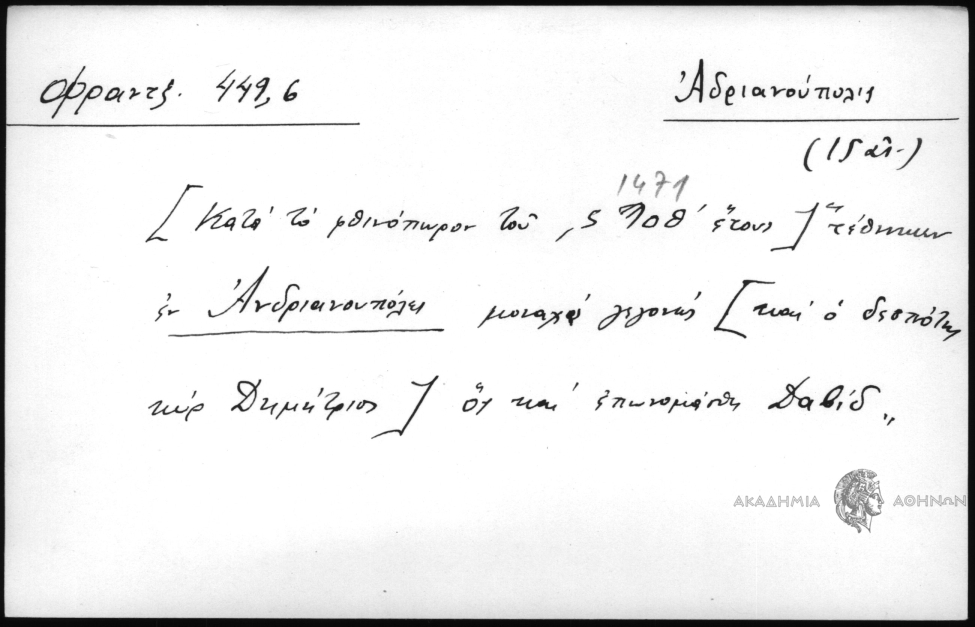 Φραντζ. 449,6
Ἀδριανούπολις
(15 αἰ.)
1471
[Κατά τό φθινόπωρον τοῦ ,ς ϡοθ΄ ἔτους] "τέθνηκεν
ἐν Ἀνδριανουπόλει μοναχός γεγονώς [καί ὁ δεσπότης
κύρ Δημήτριος] ὅς καί ἐπωνομάσθη Δαβίδ„
ΑΚΑΔΗΜΙΑ ΑΘΗΝΩΝ